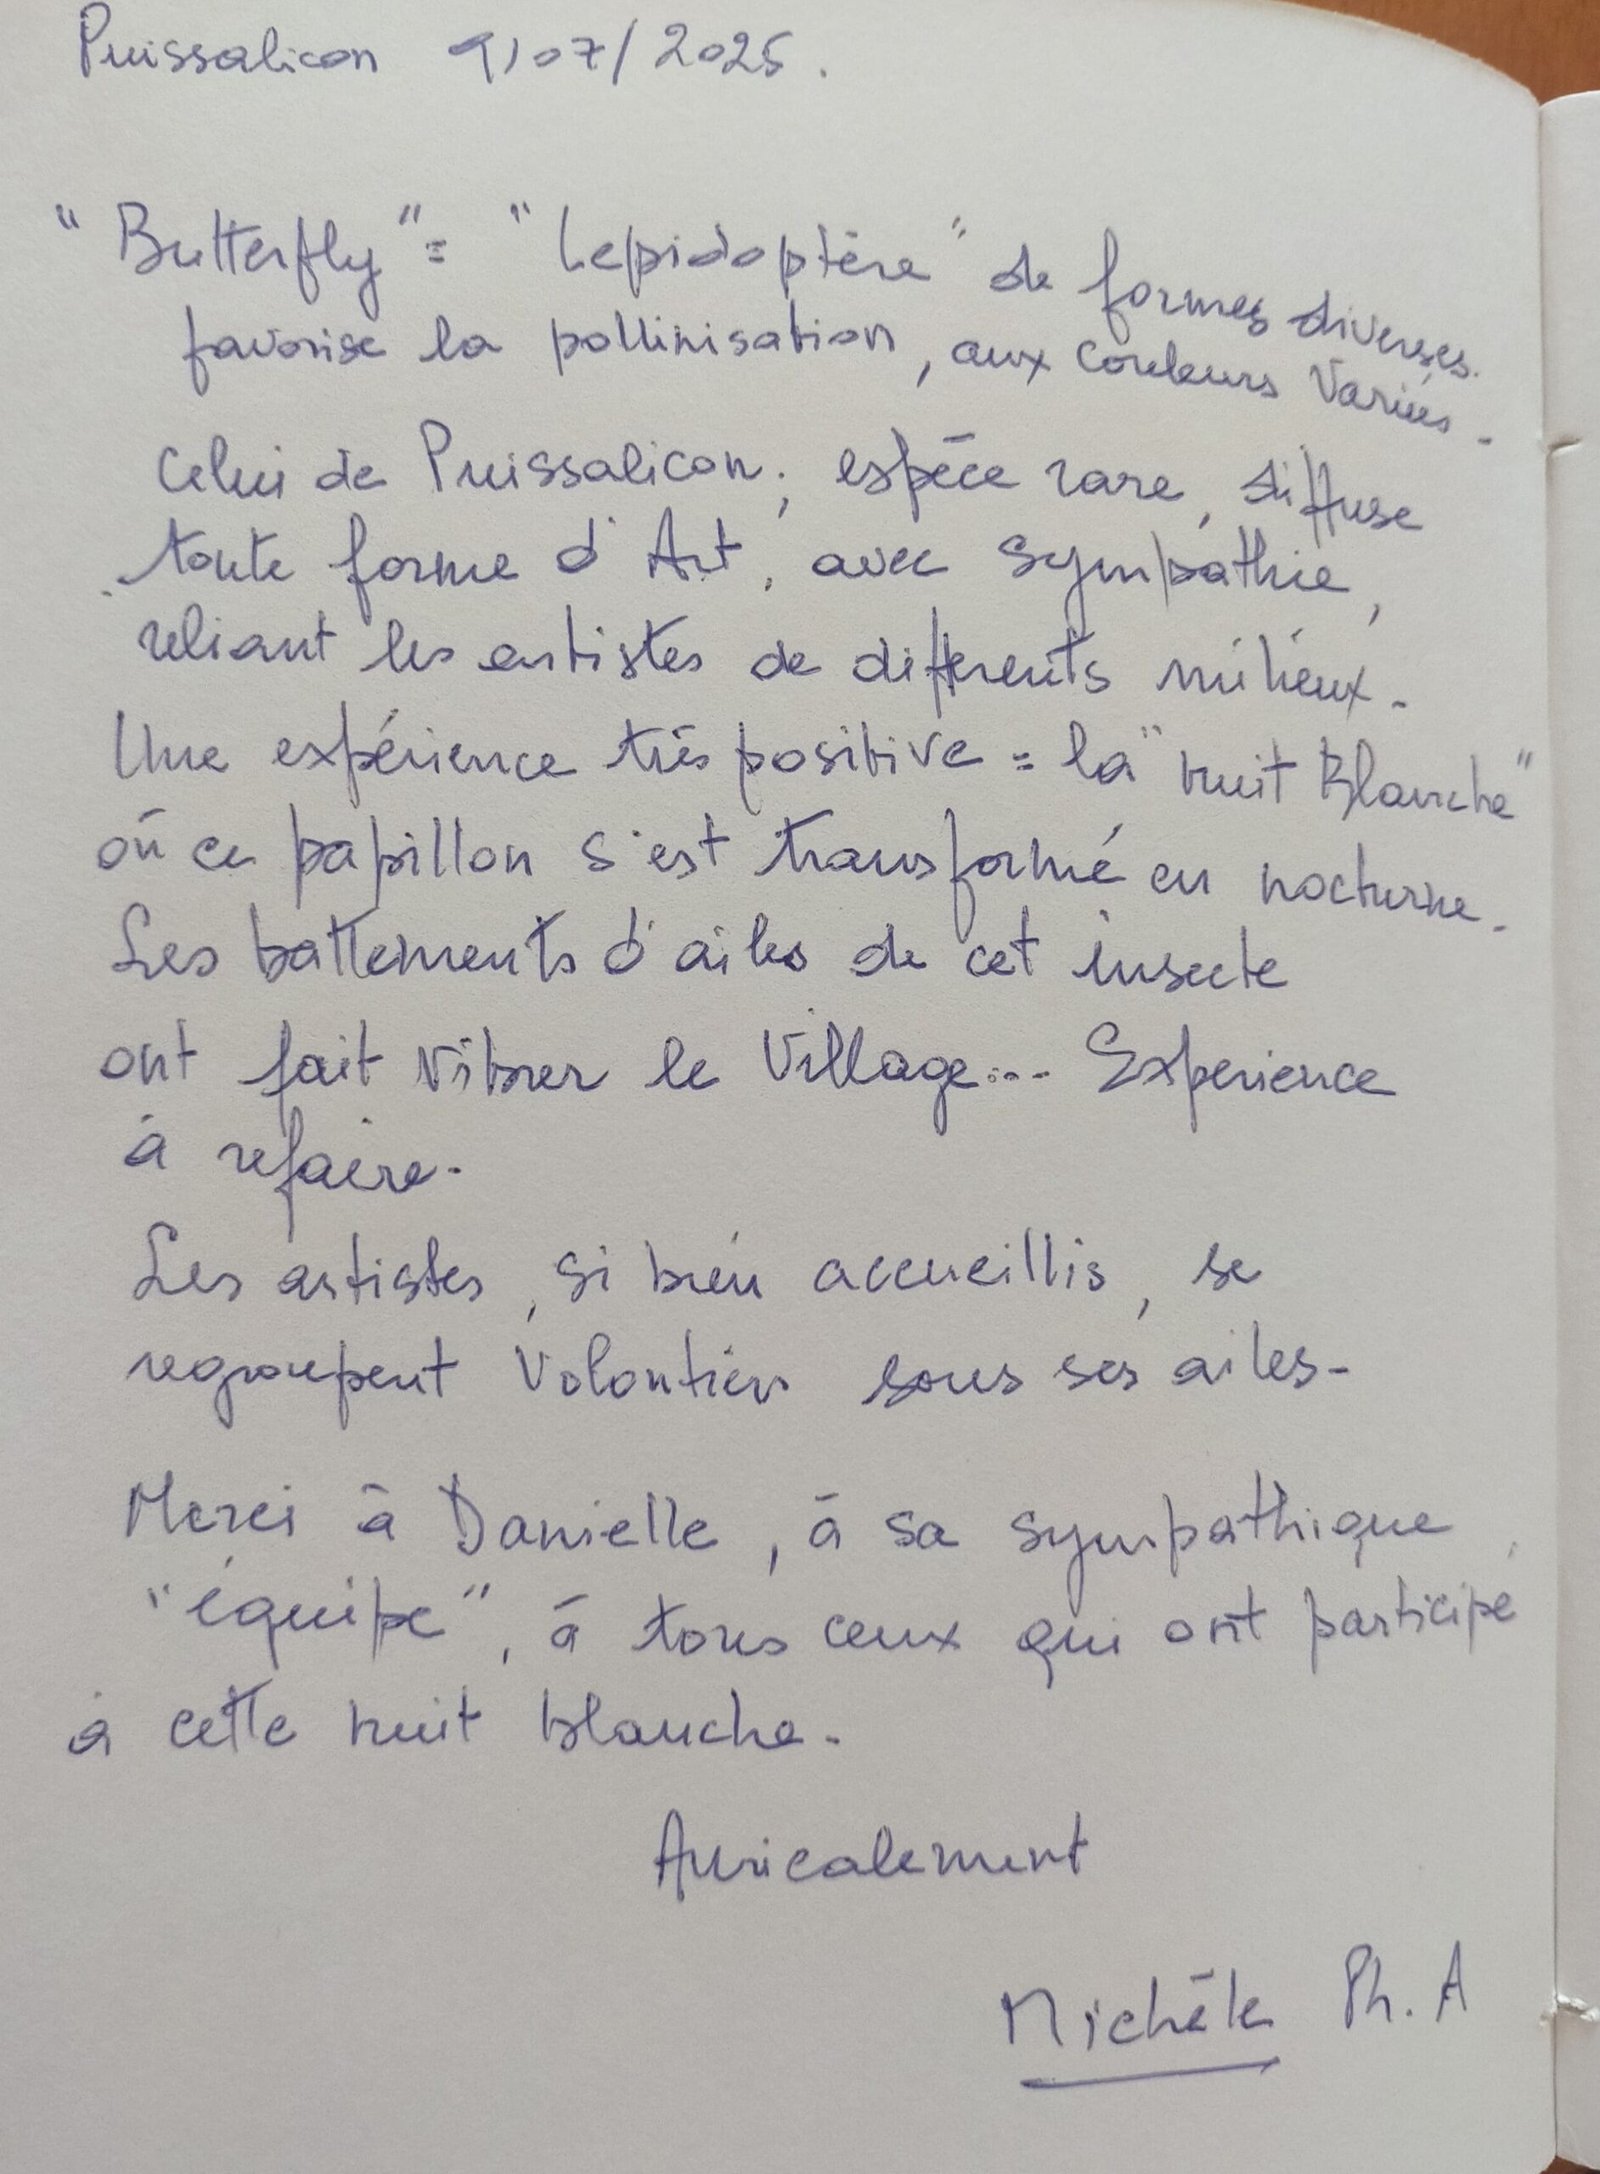 Puissalicon 9/07/2025.
"Butterfly" = "Lepidoptère" de formes diverses.
favorise la pollinisation, aux couleurs variées.
Celui de Puissalicon ; espèce rare, diffuse
toute forme d'Art, avec sympathie,
reliant les artistes de différents milieux.
Une expérience très positive = la "nuit Blanche"
où ce papillon s'est transformé en nocturne.
Les battements d'ailes de cet insecte
ont fait vibrer le Village... Experience
à refaire.
Les artistes, si bien accueillis, se
regroupent volontiers sous ses ailes.
Merci à Danielle, à sa sympathique
"équipe", à tous ceux qui ont participé
à cette nuit blanche.
Amicalement
Michèle Ph. A